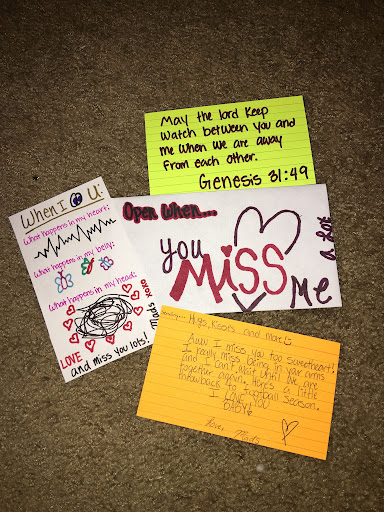 May the lord keep
watch between you and
me when we are away
from each other.
Genesis 31:49
Open when...
you
Miss
Me
a lot
When I U:
What happens in my heart:
What happens in my belly:
What happens in my head:
LOVE
and miss you lots!
xoxo
Hugs, Kisses and more
Aww I miss you too sweetheart!
I really miss being in your arms
and I can't wait until we are
together again. Here's a little
throwback to football season.
I LOVE YOU
Love, Mads